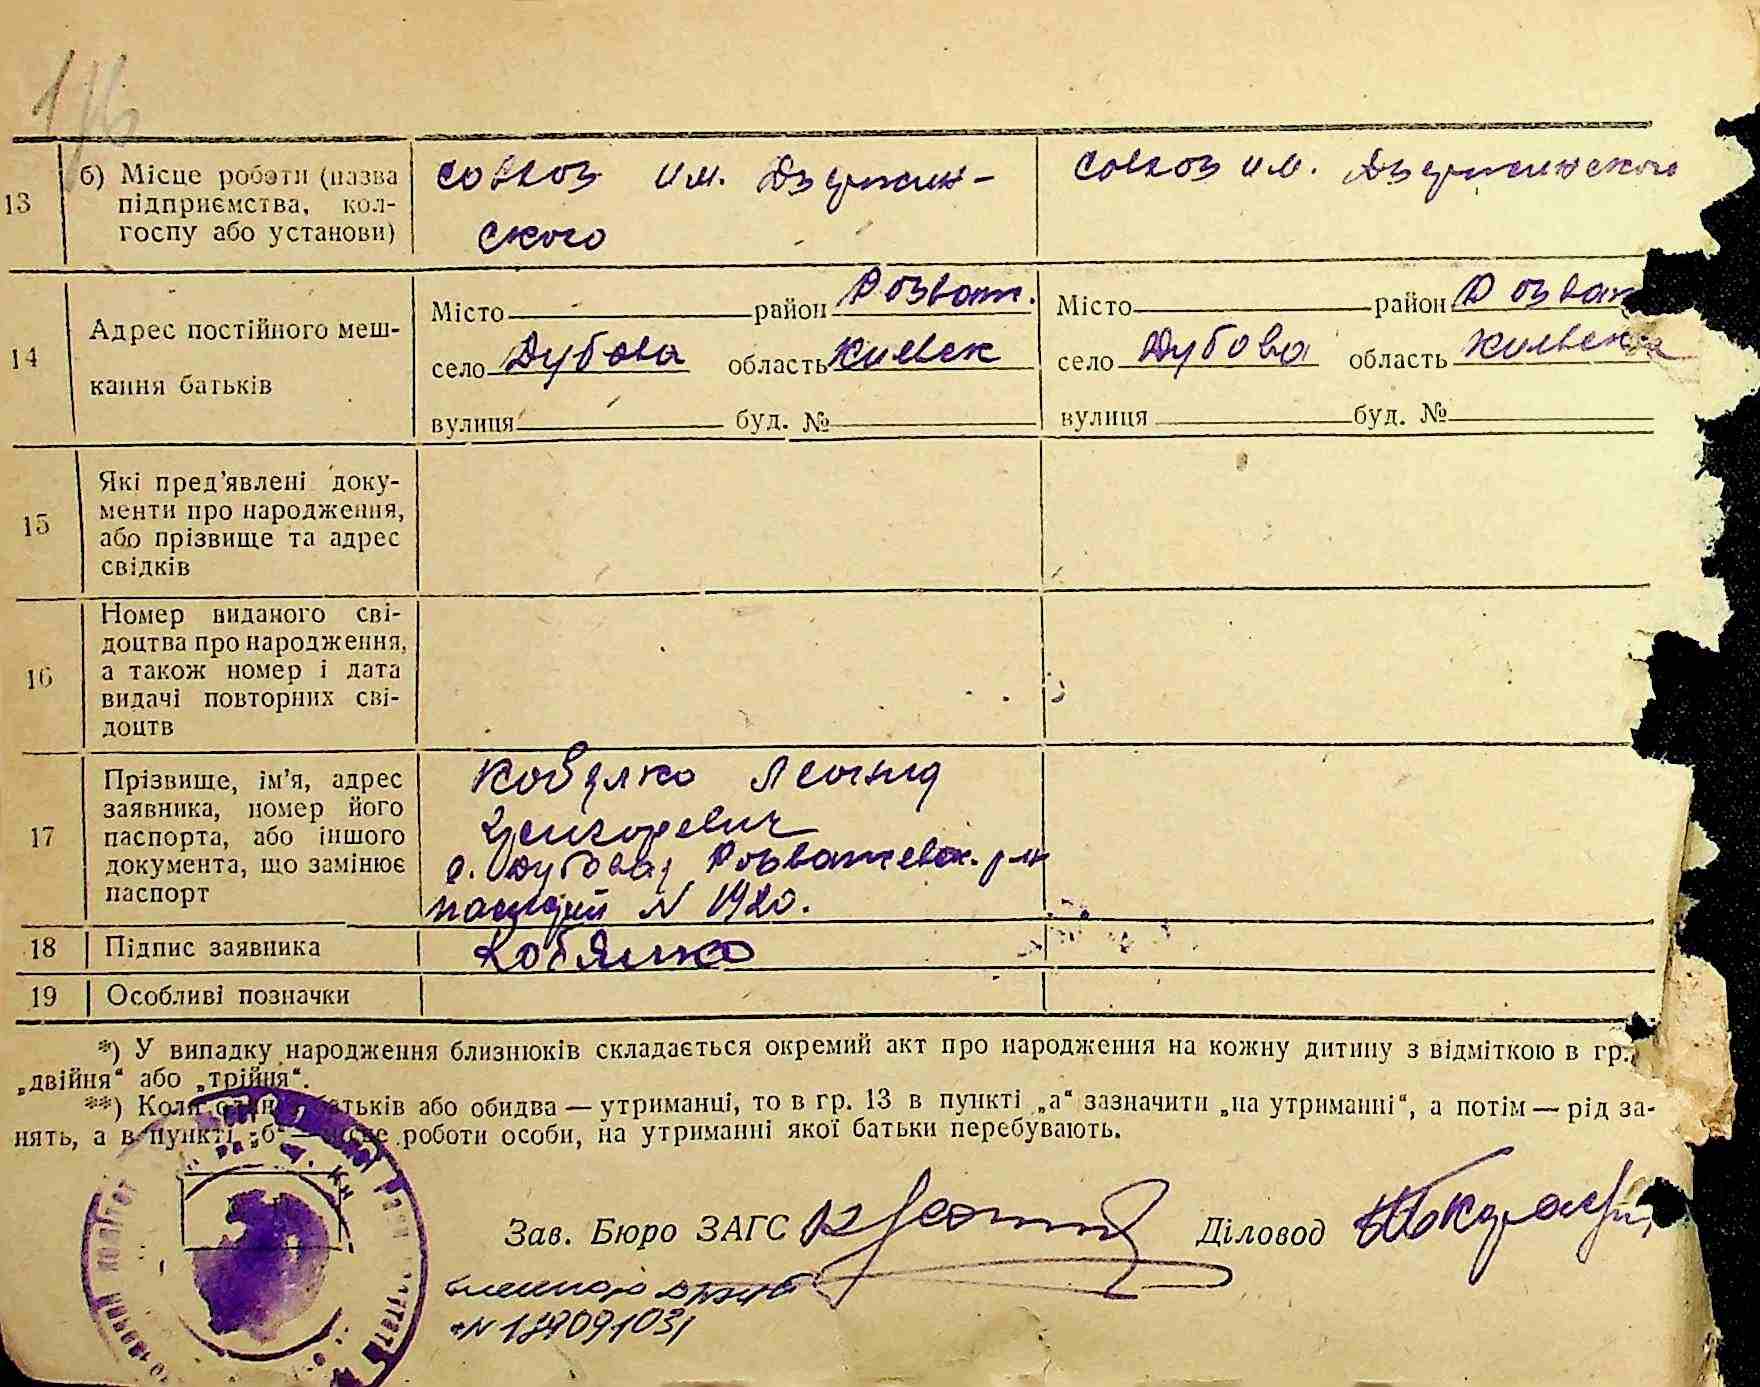 13 б) Місце роботи (назва підприємства, колгоспу або установи)
совхоз им. Дзержин-
ского
совхоз им. Дзержинского
14 Адрес постійного меш-
кання батьків
Місто район Розваж.
село Дубова область Киевск
вулиця буд. №
Місто район Розваж
село Дубова область Киевска
вулиця буд. №
15 Які пред'явлені доку-
менти про народження,
або прізвище та адрес
свідків
16 Номер виданого сві-
доцтва про народження,
а також номер і дата
видачі повторних сві-
доцтв
17 Прізвище, ім'я, адрес
заявника, номер його
паспорта, або іншого
документа, що замінює
паспорт
Кобзяко Леонид
Григоревич
с. Дубова, Розважевск. р-н
N 1920.
18 Підпис заявника
19 Особливі позначки
*) У випадку народження близнюків складається окремий акт про народження на кожну дитину з відміткою в гр.
„двійня“ або „трійня“.
**) Коли один батьків або обидва — утриманці, то в гр. 13 в пункті „а“ зазначити „на утриманні“, а потім — рід за-
нять, а в пункті „б“ — місце роботи особи, на утриманні якої батьки перебувають.
Зав. Бюро ЗАГС Діловод